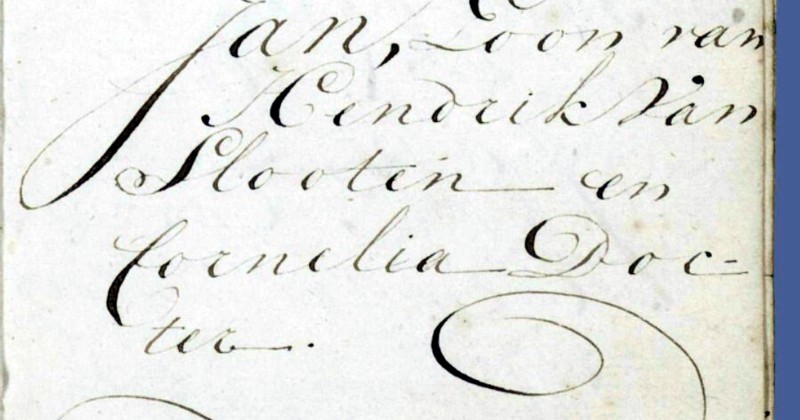 Jan, Zoon van
Hendrik van
Slooten en
Cornelia Doc=
ter.